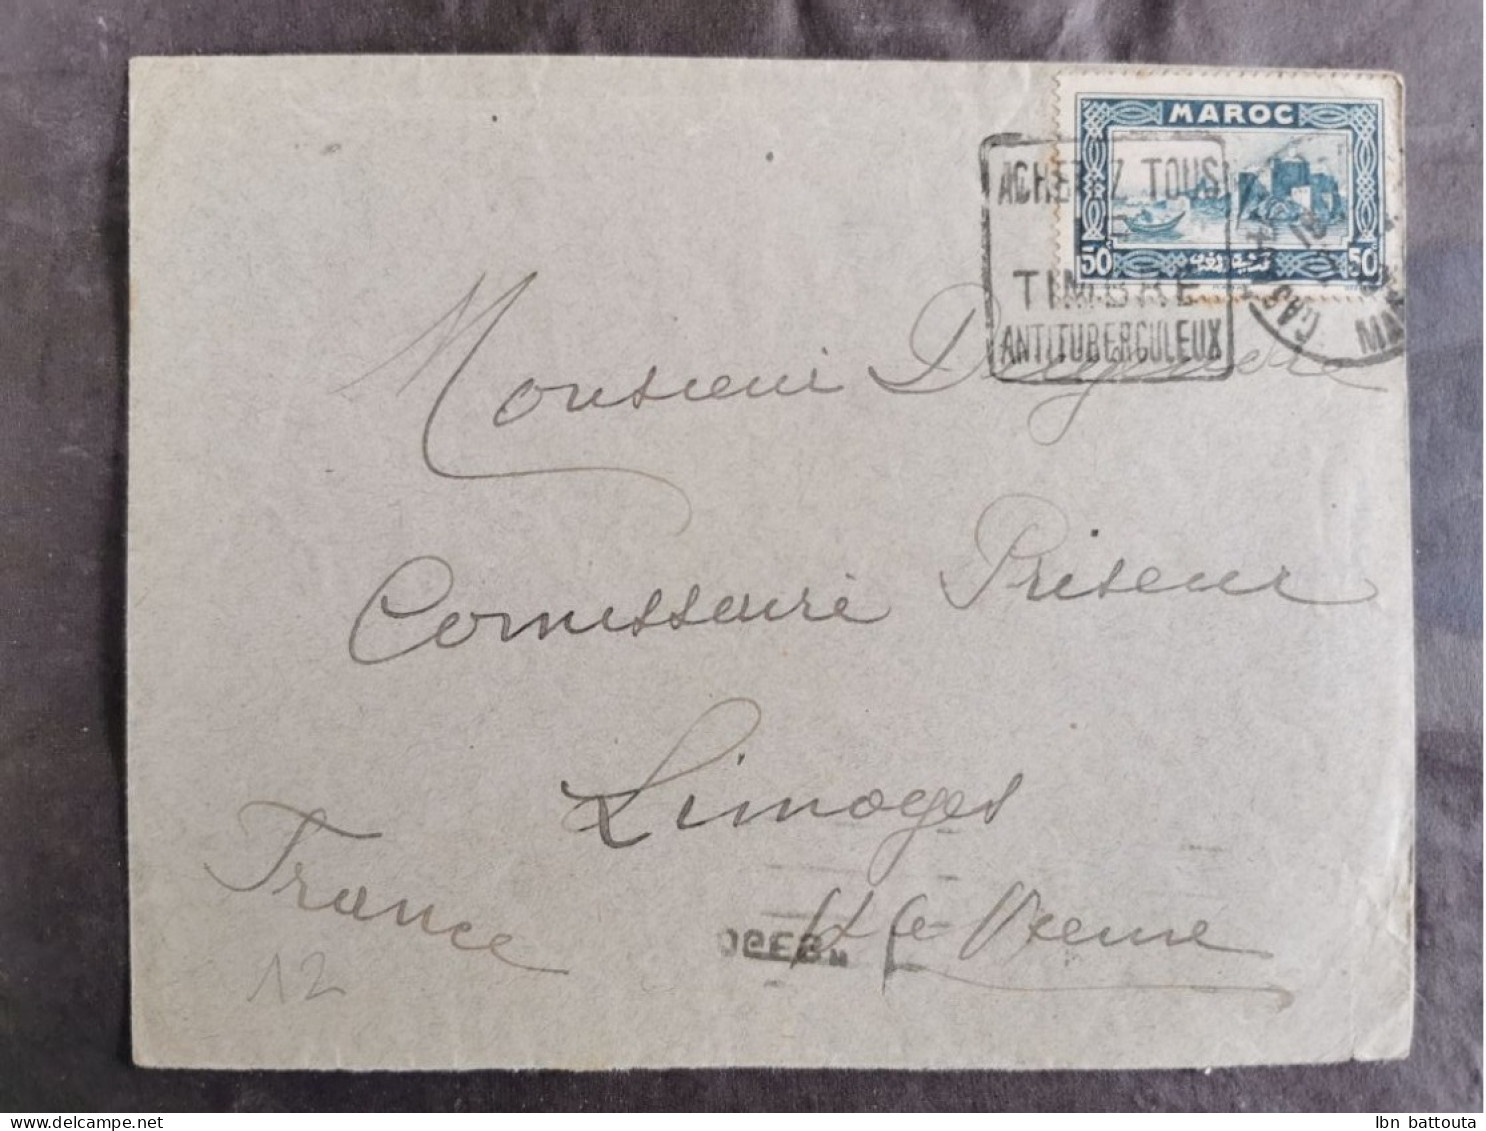 MAROC
50 50
ACHETEZ TOUS
LE
TIMBRE
ANTITUBERCULEUX
CAS
MA
Monsieur
Comissaire Priseur
Limoges
Hte Vienne
France
12
Ibn battouta